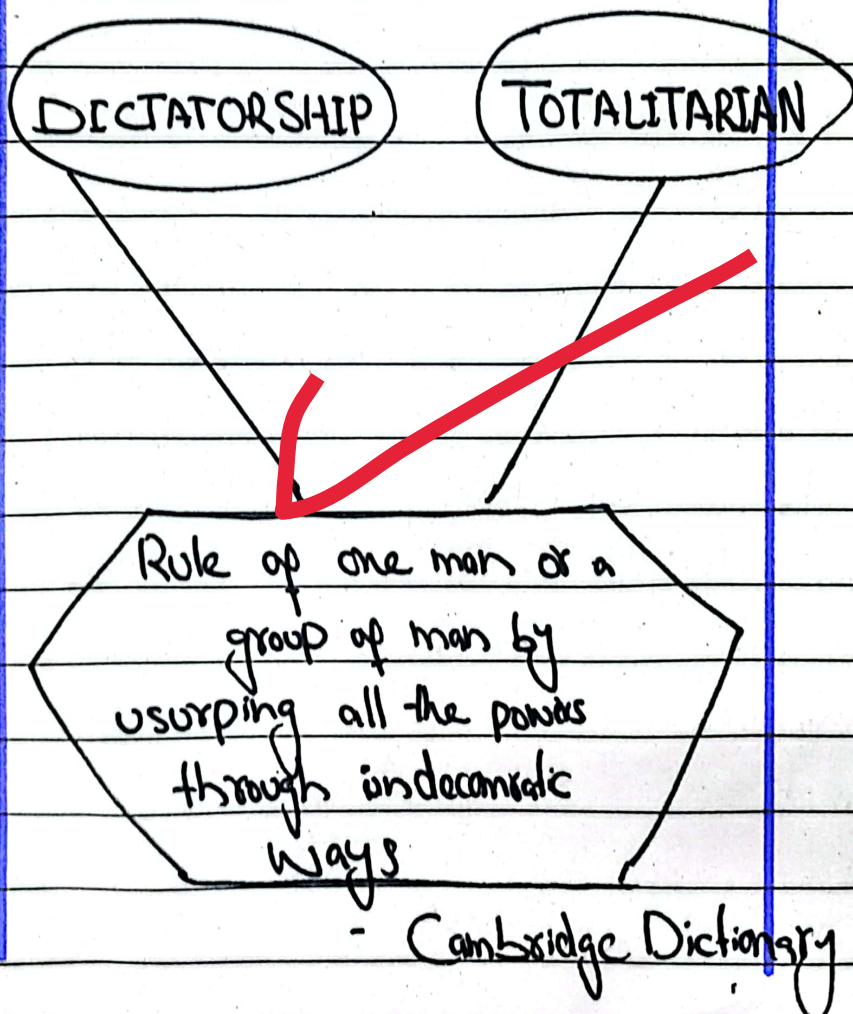 DICTATORSHIP
TOTALITARIAN
Rule of one man or a
group of man by
usurping all the powers
through
ways
- Cambridge Dictionary